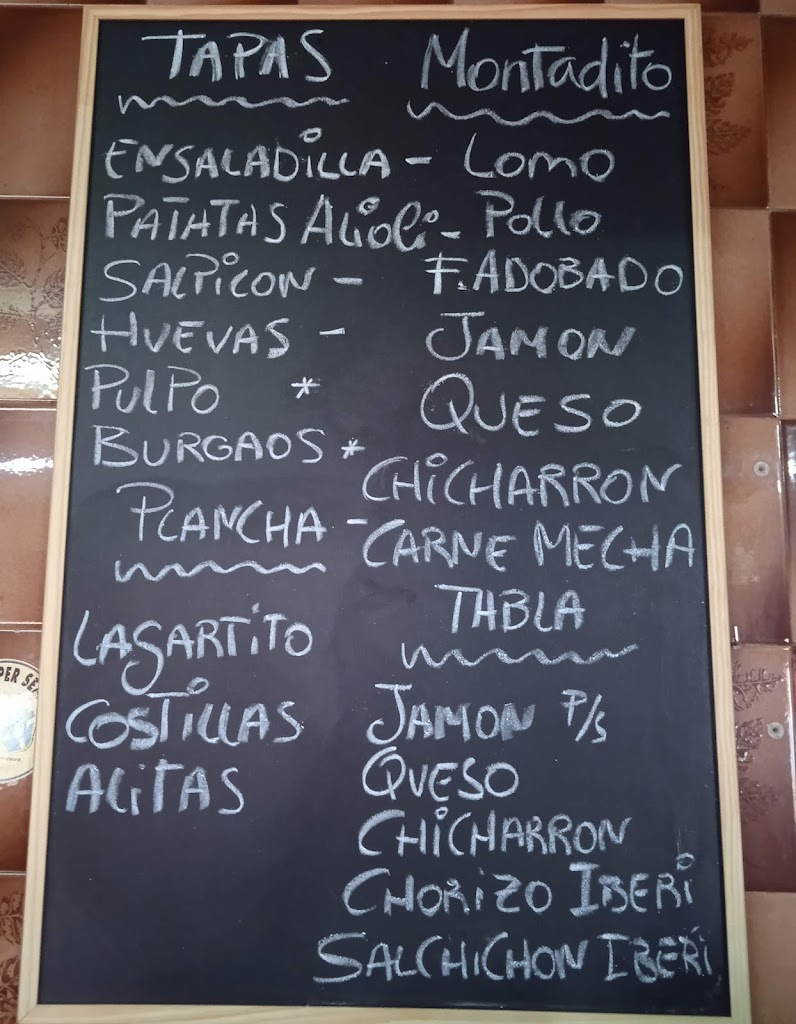 TAPAS
ENSALADILLA -
PATATAS Alioli -
SALPICON -
HUEVAS -
PULPO *
BURGAOS *
PLANCHA -
LAGARTITO
COSTILLAS
ALITAS
Montadito
Lomo
Pollo
F. ADOBADO
JAMON
QUESO
CHICHARRON
CARNE MECHA
TABLA
JAMON P/S
QUESO
CHICHARRON
CHORIZO IBERI
SALCHICHON IBERI